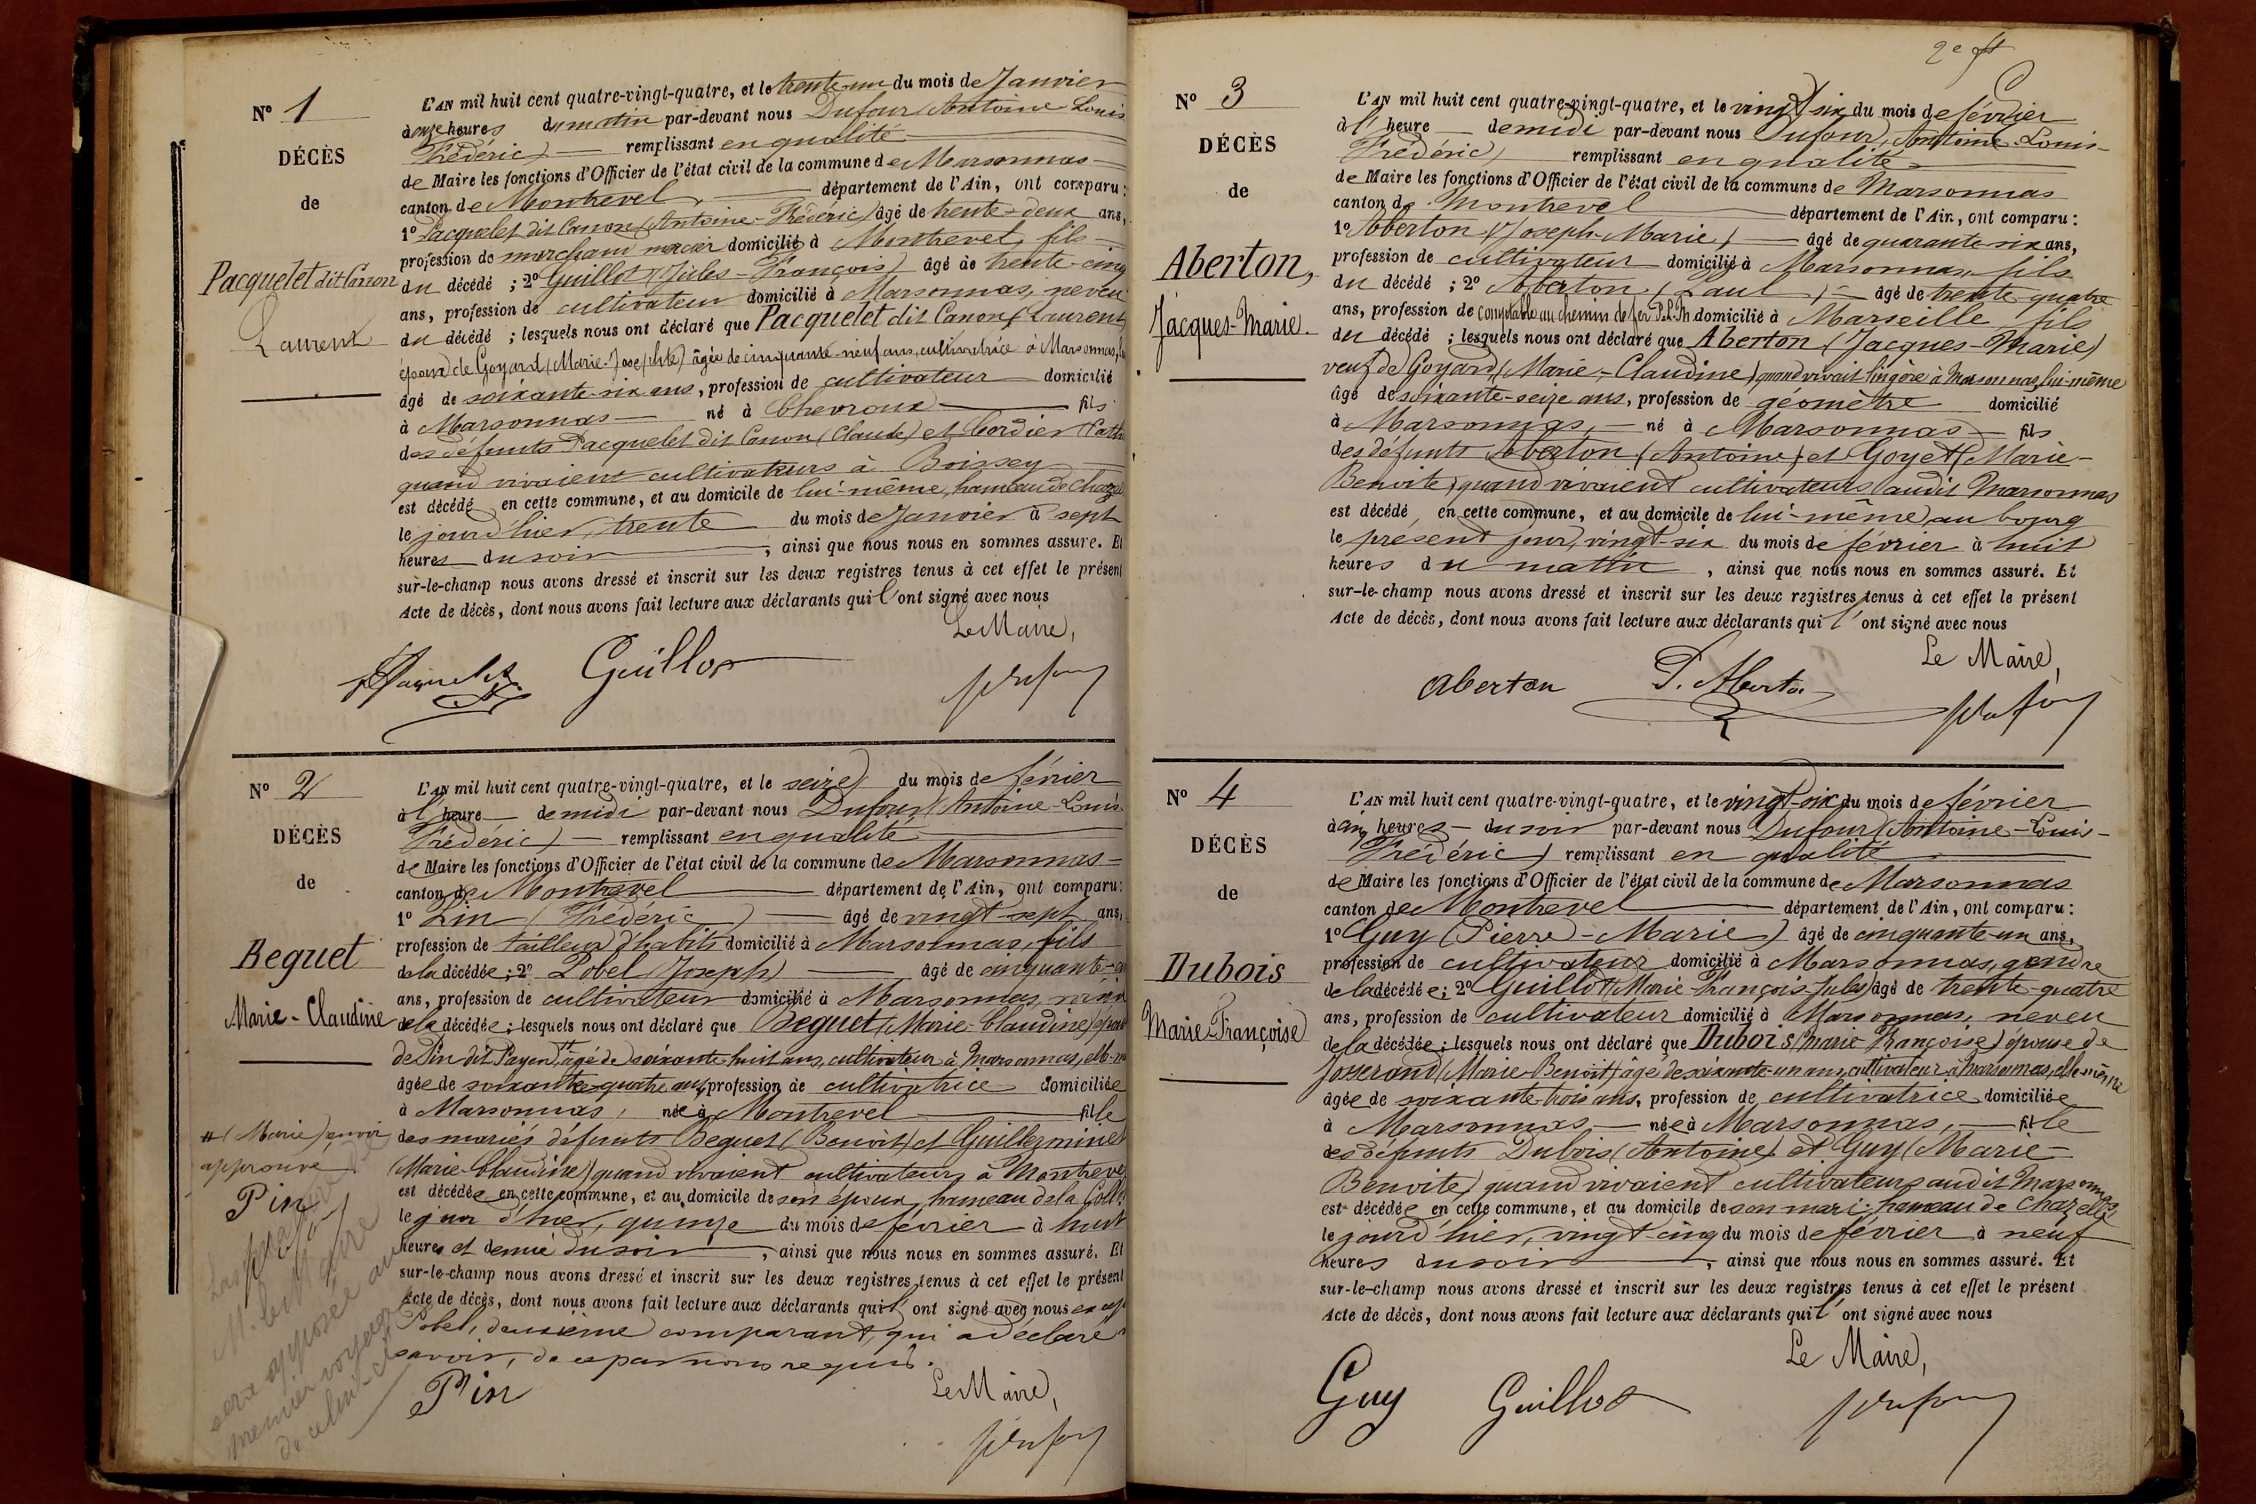 N° 1
DÉCÈS
de
Pacquelet dit Canon
Laurent
L'AN mil huit cent quatre-vingt-quatre, et le trente-un du mois de Janvier
à onze heures du matin par-devant nous Dufour (Antoine Louis
Frédéric) remplissant en qualité
de Maire les fonctions d'Officier de l'état civil de la commune de Marsonnas
canton de Montrevel, département de l'Ain, ont comparu:
1° Pacquelet dit Canon (Antoine-Frédéric) âgé de trente-deux ans,
profession de marchand mercier domicilié à Montrevel, fils
du décédé ; 2° Guillot (Jules-François) âgé de trente-cinq
ans, profession de cultivateur domicilié à Marsonnas, neveu
du décédé ; lesquels nous ont déclaré que Pacquelet dit Canon (Laurent)
époux de Goyard (Marie-Josephte) âgée de cinquante-neuf ans, cultivatrice à Marsonnas,
âgé de soixante-six ans, profession de cultivateur domicilié
à Marsonnas né à Chevroux fils
des défunts Pacquelet dit Canon (Claude) et Cordier
quand vivaient cultivateurs à Boissey
est décédé en cette commune, et au domicile de lui-même, hameau de
le jour d'hier, trente du mois de Janvier à sept
heures du soir, ainsi que nous nous en sommes assuré. Et
sur-le-champ nous avons dressé et inscrit sur les deux registres tenus à cet effet le présent
Acte de décès, dont nous avons fait lecture aux déclarants qui l'ont signé avec nous
Le Maire,
Guillot
N° 2
DÉCÈS
de
Beguet
Marie-Claudine
(Marie) renvoi
approuvé
Pin
L'AN mil huit cent quatre-vingt-quatre, et le seize du mois de février
à l'heure de midi par-devant nous Dufour (Antoine-Louis
Frédéric) remplissant en qualité
de Maire les fonctions d'Officier de l'état civil de la commune de Marsonnas
canton de Montrevel département de l'Ain, ont comparu:
1° Pin (Frédéric) âgé de vingt-sept ans,
profession de tailleur d'habits domicilié à Marsonnas, fils
de la décédée ; 2° Pobel (Joseph) âgé de cinquante-
ans, profession de cultivateur domicilié à Marsonnas, voisin
de la décédée ; lesquels nous ont déclaré que Beguet (Marie-Claudine) épouse
de Pin dit Payen, âgé de soixante-huit ans, cultivateur à Marsonnas,
âgée de soixante-quatre ans, profession de cultivatrice domiciliée
à Marsonnas, née à Montrevel fille
des mariés défunts Beguet (Benoît) et Guillerminet
(Marie-Claudine) quand vivaient cultivateurs à Montrevel
est décédée en cette commune, et au domicile de son époux, hameau de la
le jour d'hier, quinze du mois de février à huit
heures et demie du soir, ainsi que nous nous en sommes assuré. Et
sur-le-champ nous avons dressé et inscrit sur les deux registres tenus à cet effet le présent
Acte de décès, dont nous avons fait lecture aux déclarants qui l'ont signé avec nous
Pobel, deuxième comparant, qui a déclaré
savoir, de ce par nous requis.
Pin
Le Maire,
2e
N° 3
DÉCÈS
de
Aberton,
Jacques-Marie.
L'AN mil huit cent quatre-vingt-quatre, et le vingt-six du mois de février
à l'heure de midi par-devant nous Dufour (Antoine-Louis-
Frédéric) remplissant en qualité
de Maire les fonctions d'Officier de l'état civil de la commune de Marsonnas
canton de Montrevel département de l'Ain, ont comparu:
1° Aberton (Joseph-Marie) âgé de quarante-six ans,
profession de cultivateur domicilié à Marsonnas, fils
du décédé ; 2° Aberton (Paul) âgé de trente-quatre
ans, profession de comptable au chemin de fer P.L.M domicilié à Marseille fils
du décédé ; lesquels nous ont déclaré que Aberton (Jacques-Marie)
veuf de Goyard (Marie-Claudine) quand vivait lingère à Marsonnas, lui-même
âgé de soixante-seize ans, profession de géomètre domicilié
à Marsonnas, né à Marsonnas fils
des défunts Aberton (Antoine) et Goyet (Marie-
Benoite) quand vivaient cultivateurs audit Marsonnas
est décédé en cette commune, et au domicile de lui-même au bourg
le présent jour, vingt-six du mois de février à huit
heures du matin, ainsi que nous nous en sommes assuré. Et
sur-le-champ nous avons dressé et inscrit sur les deux registres tenus à cet effet le présent
Acte de décès, dont nous avons fait lecture aux déclarants qui l'ont signé avec nous
Le Maire,
Aberton
P. Aberton
N° 4
DÉCÈS
de
Dubois
Marie-Françoise
L'AN mil huit cent quatre-vingt-quatre, et le vingt-six du mois de février
à cinq heures du soir par-devant nous Dufour (Antoine-Louis-
Frédéric) remplissant en qualité
de Maire les fonctions d'Officier de l'état civil de la commune de Marsonnas
canton de Montrevel département de l'Ain, ont comparu:
1° Guy (Pierre-Marie) âgé de cinquante-un ans,
profession de cultivateur domicilié à Marsonnas, gendre
de la décédée ; 2° Guillot (Marie-François-Jules) âgé de trente-quatre
ans, profession de cultivateur domicilié à Marsonnas, neveu
de la décédée ; lesquels nous ont déclaré que Dubois (Marie Françoise) épouse de
Josserand (Marie-Benoît) âgé de soixante-un ans, cultivateur à Marsonnas, elle-même
âgée de soixante-trois ans, profession de cultivatrice domiciliée
à Marsonnas, née à Marsonnas, fille
des défunts Dubois (Antoine) et Guy (Marie-
Benoite) quand vivaient cultivateurs audit Marsonnas
est décédée en cette commune, et au domicile de son mari, hameau de Chazelle
le jour d'hier, vingt-cinq du mois de février à neuf
heures du soir, ainsi que nous nous en sommes assuré. Et
sur-le-champ nous avons dressé et inscrit sur les deux registres tenus à cet effet le présent
Acte de décès, dont nous avons fait lecture aux déclarants qui l'ont signé avec nous
Le Maire,
Guy
Guillot